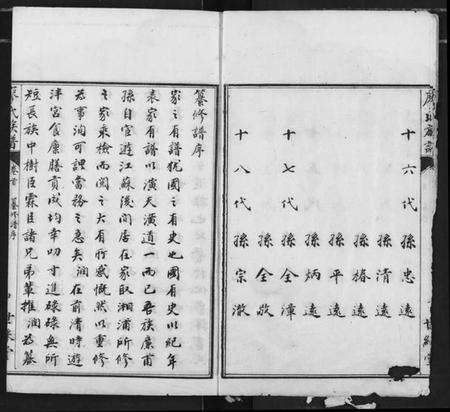 十六代孫忠遠
孫清遠
孫椿遠
孫平遠
孫炳遠
十七代孫全渾
孫全敬
十八代孫宗澂
纂修譜序
家之有譜猶國之有史也國有史以紀年
表家有譜以演天潢道一而已吾族廉甫
孫自宦遊江蘇後閒居在家臥湘浦所修
之家乘檢而閱之大有所感慨然以重修
為事潤可謂當務之急矣潤在前清時遊
泮宮食廩膳貢成均幸叨寸進碌碌無所
短長族中樹臣霖臣諸兄弟輩推潤為纂
氏族譜
卷首
纂修譜序